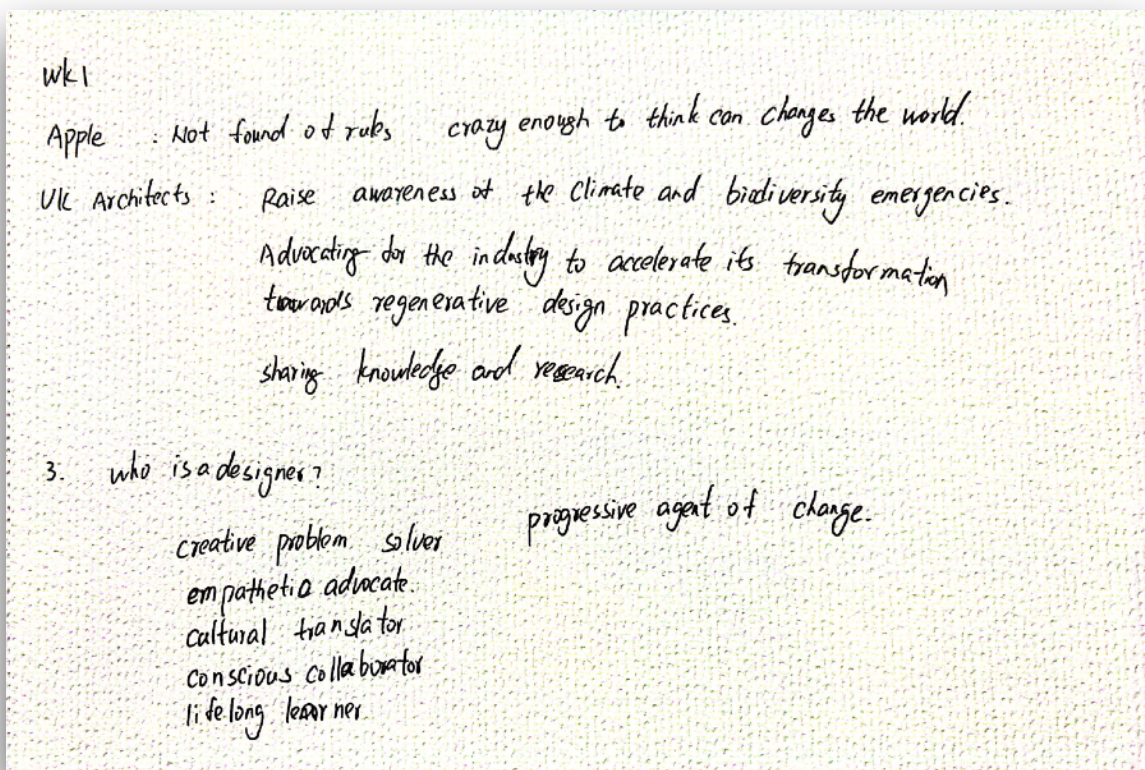 wk1
Apple : Not found of rules crazy enough to think can changes the world.
UK Architects : Raise awareness of the Climate and biodiversity emergencies.
Advocating for the industry to accelerate its transformation
towards regenerative design practices.
sharing knowledge and research.
3. who is a designer?
progressive agent of change.
creative problem solver
empathetic advocate.
cultural translator
conscious collaborator
lifelong learner